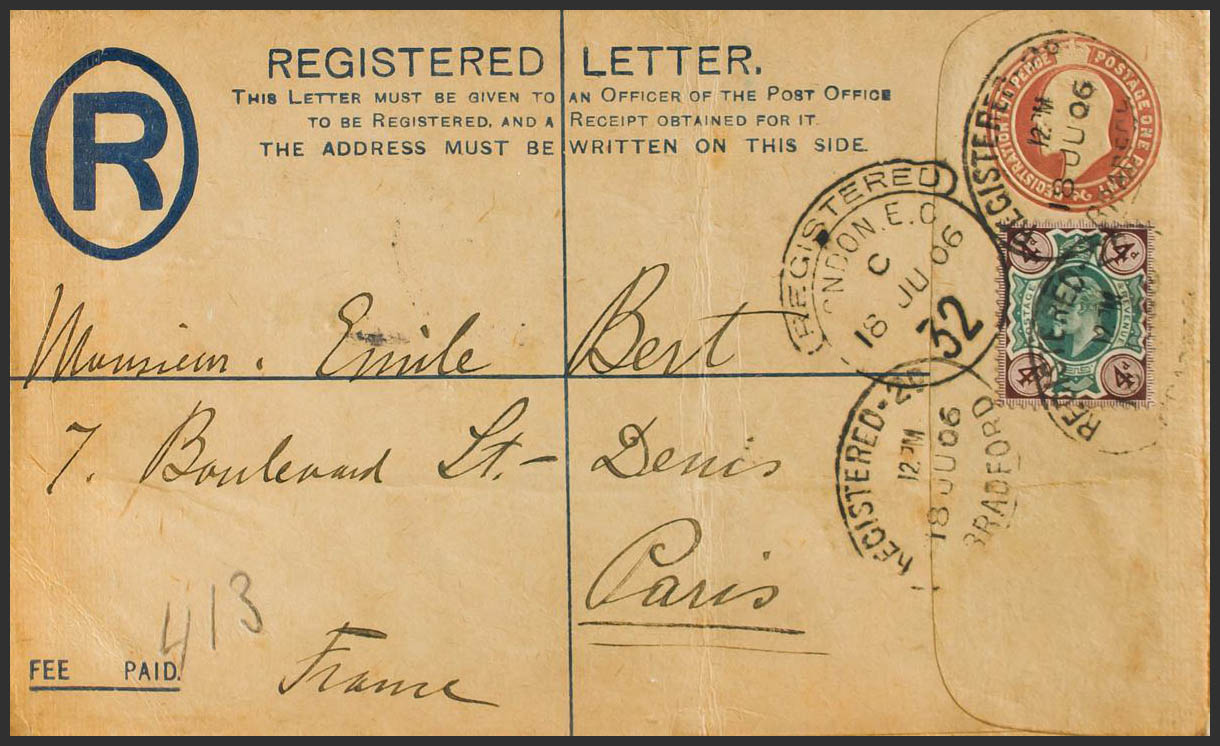 R
REGISTERED LETTER.
THIS LETTER MUST BE GIVEN TO AN OFFICER OF THE POST OFFICE
TO BE REGISTERED, AND A RECEIPT OBTAINED FOR IT.
THE ADDRESS MUST BE WRITTEN ON THIS SIDE.
REGISTRATION TWOPENCE POSTAGE ONE PENNY
REGISTERED
12 PM
18 JU 06
BRADFORD
4D 4D
POSTAGE REVENUE
4D 4D
REGISTERED
12 PM
REGISTERED
LONDON.E.C
C
18 JU 06
32
REGISTERED
12 PM
18 JU 06
BRADFORD
Monsieur. Emile Bert
7. Boulevard St.- Denis
Paris
France
413
FEE PAID.